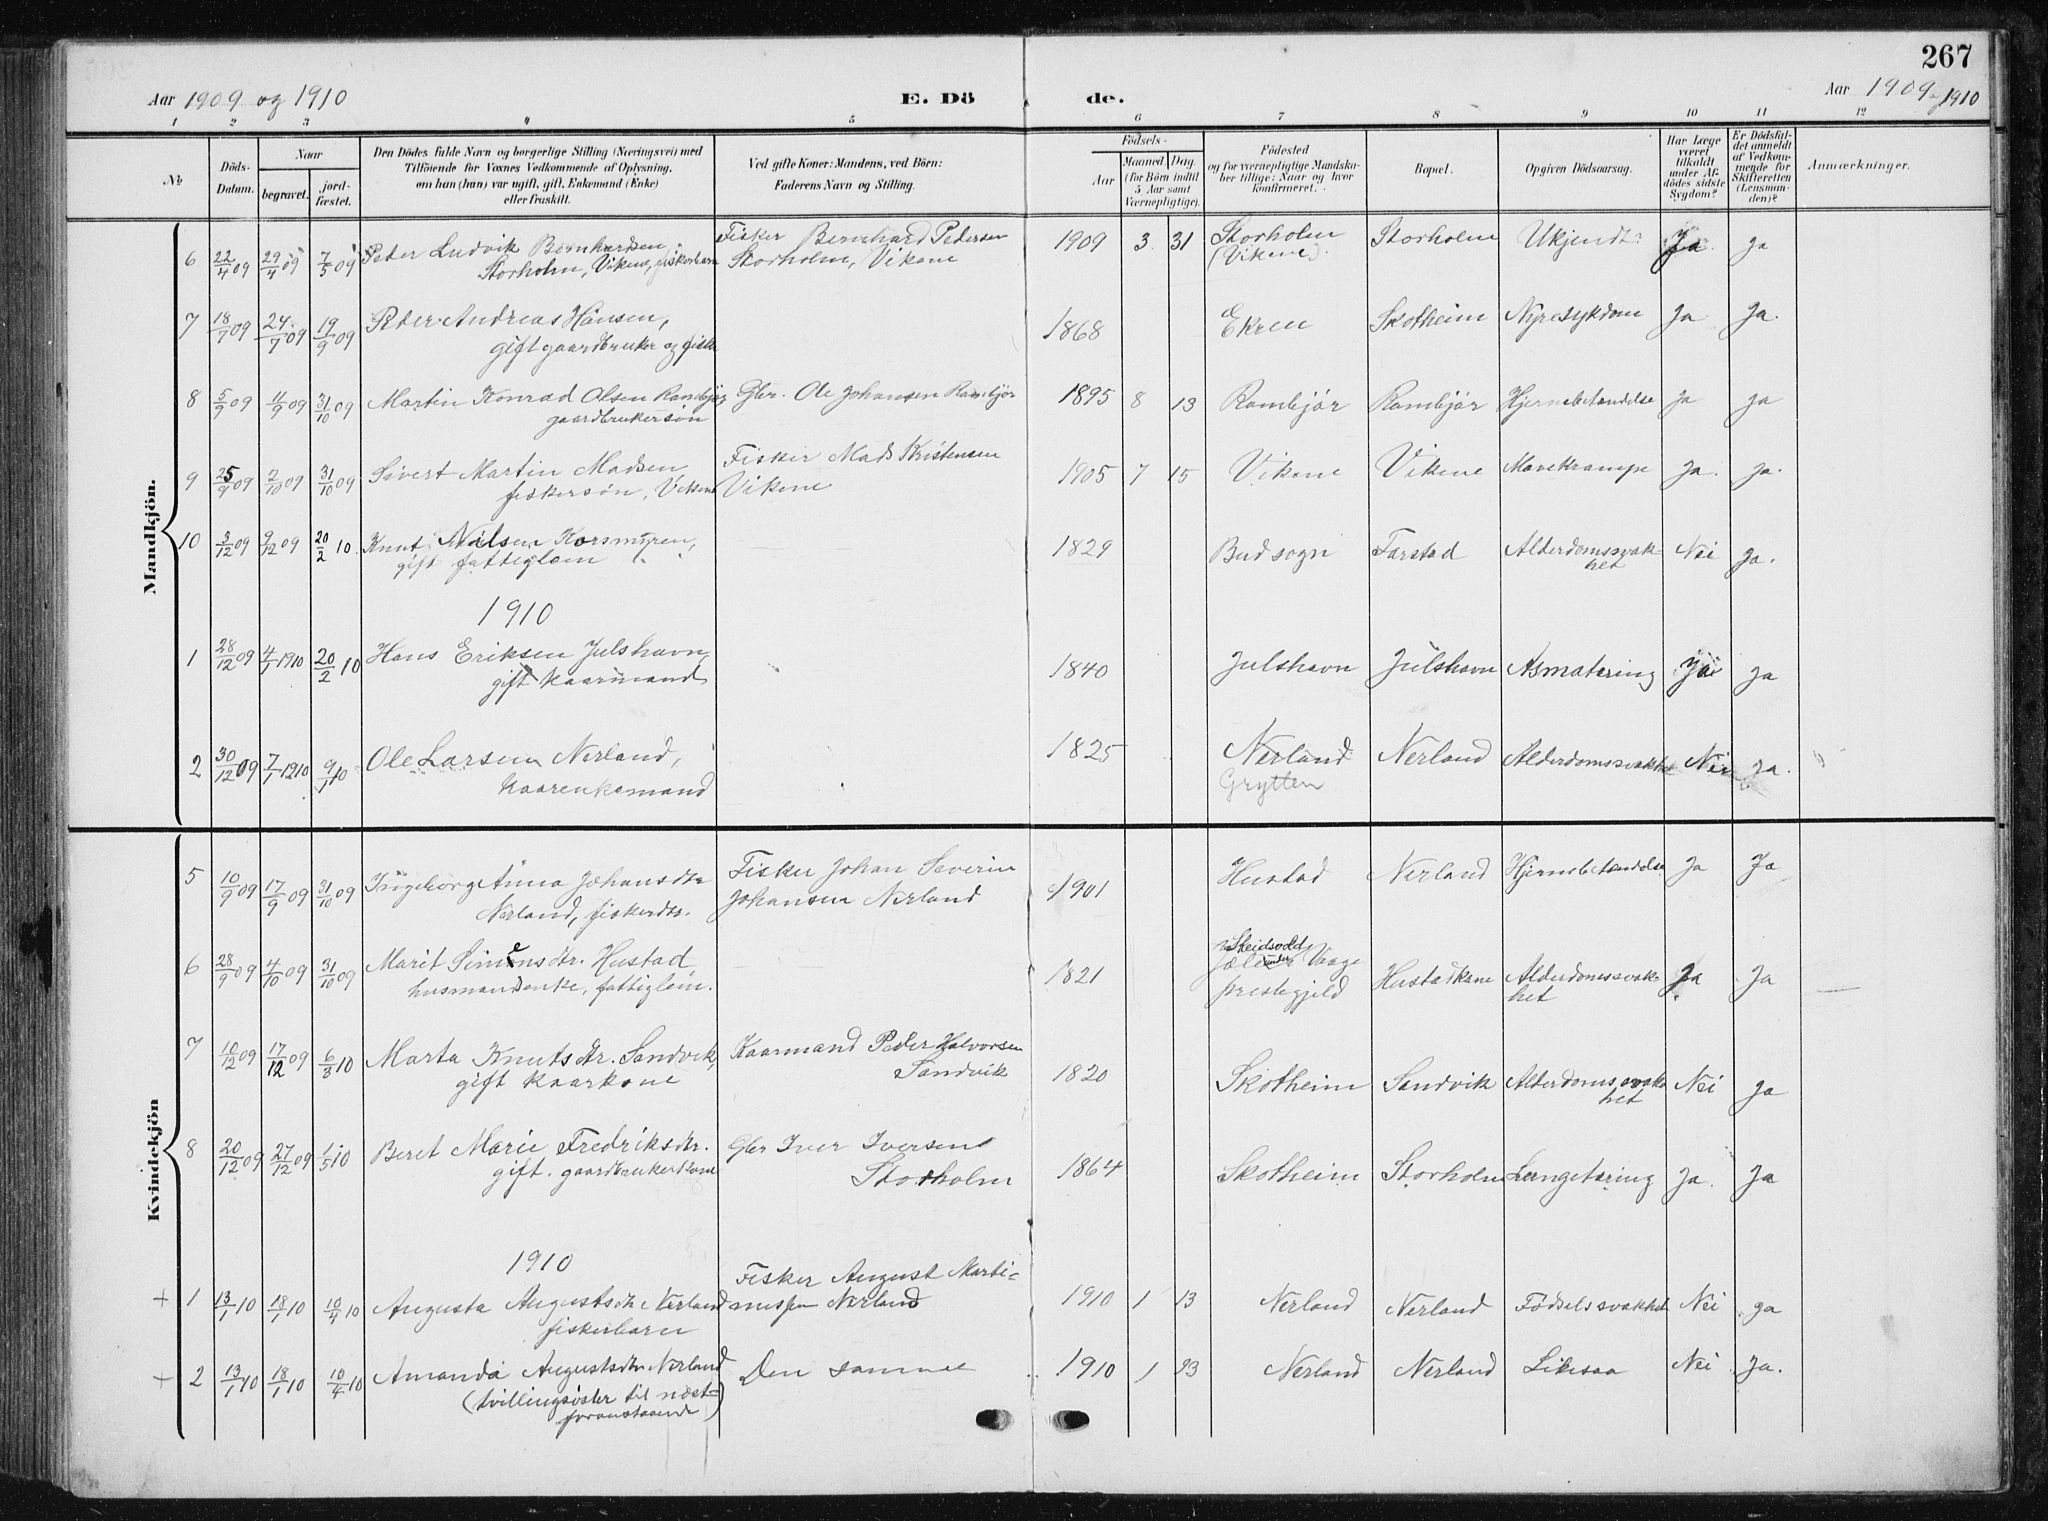 267
Aar 1909 og 1910 E. Dö de. Aar 1909 og 1910
1 2 3 4 5 6 7 8 9 10 11 12
No
Döds-
Datum.
Naar
begravet.
jord-
fæstet.
Den Dödes fulde Navn og borgerlige Stilling (Næringsvei) med
Tilföiende for Voxnes Vedkommende af Oplysning,
om han (hun) var ugift, gift, Enkemand (Enke)
eller fraskilt.
Ved gifte Koner: Mandens, ved Börn:
Faderens Navn og Stilling.
Födsels-
Aar
Maaned. Dag.
(for Börn indtil
5 Aar samt
Værnepligtige).
Födested
og for værnepligtige Mandska-
ber tillige: Naar og hvor
konfirmeret.
Bopæl.
Opgiven Dödsaarsag.
Har Læge
været
tilkaldt
under Af-
dödes sidste
Sygdom?
Er Dödsfal-
det anmeldt
af Vedkom-
mende for
Skifteretten
(Lensman-
den)?
Anmærkninger.
Mandkjön.
6 22/4 09 29/4 09 7/5 09 Peder Ludvik Bernhardsen Fisker Bernhard Pedersen 1909 3 31 Storholm Storholm Ukjendt Ja ja
Storholm, Vikene, fiskerbarn Storholm, Vikene (Vikene)
7 18/7 09 24/7 09 19/9 09 Peder Andreas Hansen, 1868 Ekren Skotheim Nyresykdom Ja Ja.
gift gaardbruker og fisker
8 5/9 09 11/9 09 31/10 09 Martin Konrad Olsen Rambjör Gbr. Ole Johansen Rambjör 1895 8 13 Rambjör Rambjör Hjernebetændelse Ja ja
gaardbrukersön
9 25/9 09 2/10 09 31/10 09 Sivert Martin Madsen Fisker Mads Kristensen 1905 7 15 Vikene Vikene Mavekrampe Ja. ja.
fiskersön, Vikene Vikene
10 3/12 09 9/12 09 20/2 10. Knut Nilsen Korsmyren, 1829 Bud sogn Farstad Alderdomssvak- Nei ja.
gift fattiglem het
1910
1 28/12 09 4/1 1910 20/2 10 Hans Eriksen Julshavn, 1840 Julshavn Julshavn Asmatering Ja ja
gift kaarmand
2 30/12 09 7/1 1910 9/1 10 Ole Larsen Nerland, 1825 Nerland Nerland Alderdomssvakhet Nei ja.
kaarenkemand Grytten
Kvindekjön
5 10/9 09 17/9 09 31/10 09 Ingeborg Anna Johansdtr Fisker Johan Severin 1901 Hustad Nerland Hjernebetændelse Ja Ja
Nerland, fiskerdtr. Johansen Nerland
6 28/9 09 4/10 09 31/10 09 Marit Simensdtr. Hustad 1821 Skeidsvold Hustadkane Alderdomssvak- Ja Ja
husmandsenke, fattiglem. under Vaage prestegjeld het
7 10/12 09 17/12 09 6/3 10 Marta Knutsdtr. Sandvik, Kaarmand Peder Halvorsen 1820 Skotheim Sandvik Alderdomssvak- Nei ja
gift kaarkone Sandvik het
8 20/12 09 27/12 09 1/5 10 Beret Marie Fredriksdtr. Gbr Iver Iversen 1864 Skotheim Storholm Lungetæring Ja. Ja
gift. gaardbrukerkone Storholm
1910
+ 1 13/1 10 18/1 10 10/4 10 Augusta Augustsdtr Nerland Fisker August Marti- 1910 1 13 Nerland Nerland Födselssvakhet Nei ja
fiskerbarn nussen Nerland
+ 2 13/1 10 18/1 10 10/4 10 Amanda Augustsdtr Nerland Den samme 1910 1 13 Nerland Nerland Likesaa Nei Ja.
(tvillingsöster til næst-
foranstaaende)